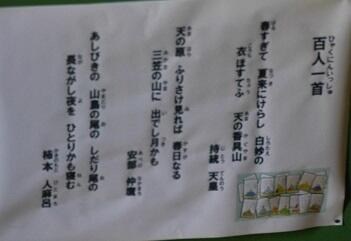 ひゃくにんいっしゅ
百人一首
春すぎて 夏来にけらし 白妙の
衣ほすてふ 天の香具山
持統 天皇
天の原 ふりさけ見れば 春日なる
三笠の山に 出でし月かも
安部 仲麿
あしびきの 山鳥の尾の しだり尾の
長ながし夜を ひとりかも寝む
柿本 人麻呂